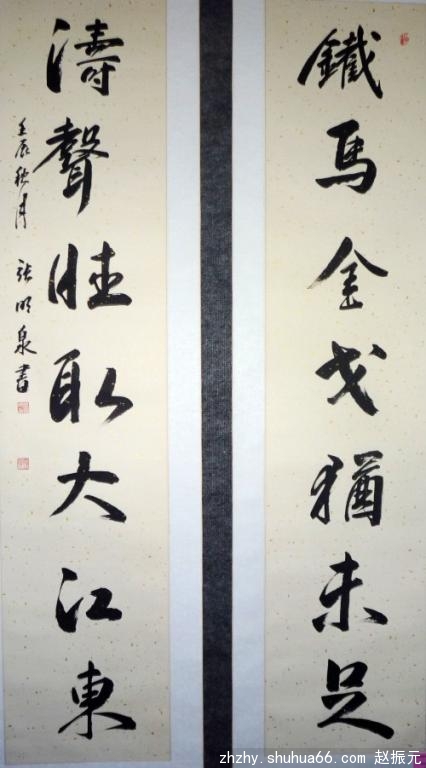 鐵馬金戈猶未足
濤聲取大江東
壬辰秋月 張明泉書
zhzhy.shuhua66.com 赵振元